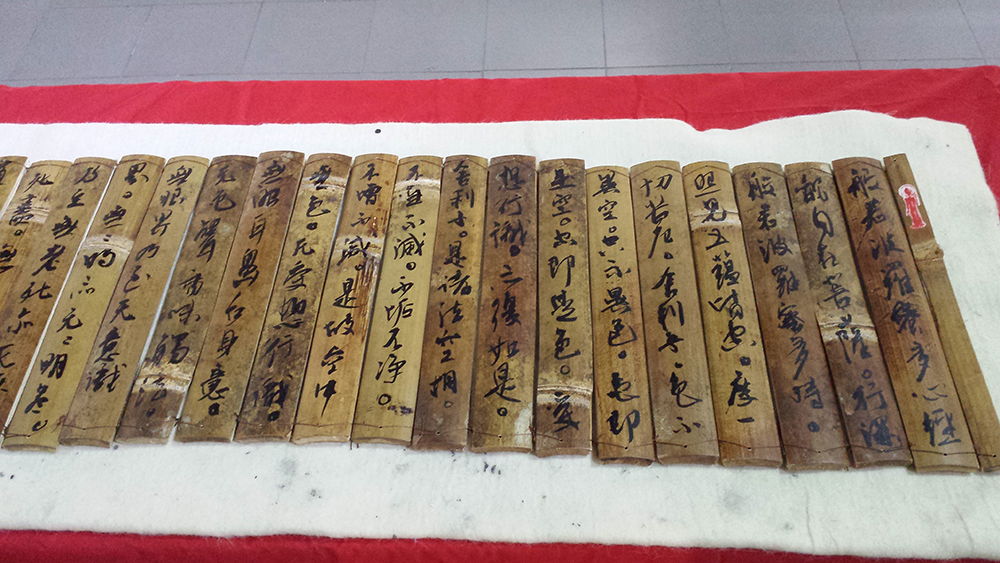 般若波羅蜜多心經
觀自在菩薩。行深
般若波羅蜜多時。
照見五蘊皆空。度一
切苦厄。舍利子。色不
異空。空不異色。色即
是空。空即是色。受
想行識。亦復如是。
舍利子。是諸法空相。
不生不滅。不垢不淨。
不增不減。是故空中
無色。无受想行識。
無眼耳鼻舌身意。
无色聲香味觸法。
無眼界乃至无意識
界。無〻明亦无〻明盡。
乃至無老死亦无老
死盡。